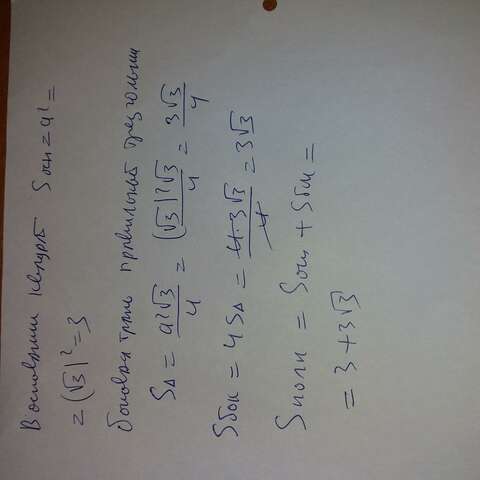 В основании квадрат Sосн = a² =
= (√3)² = 3
боковая грань правильный треугольник
S△ = a²√3/4 = (√3)²√3/4 = 3√3/4
Sбок = 4S△ = 4·3√3/4 = 3√3
Sполн = Sосн + Sбок =
= 3 + 3√3